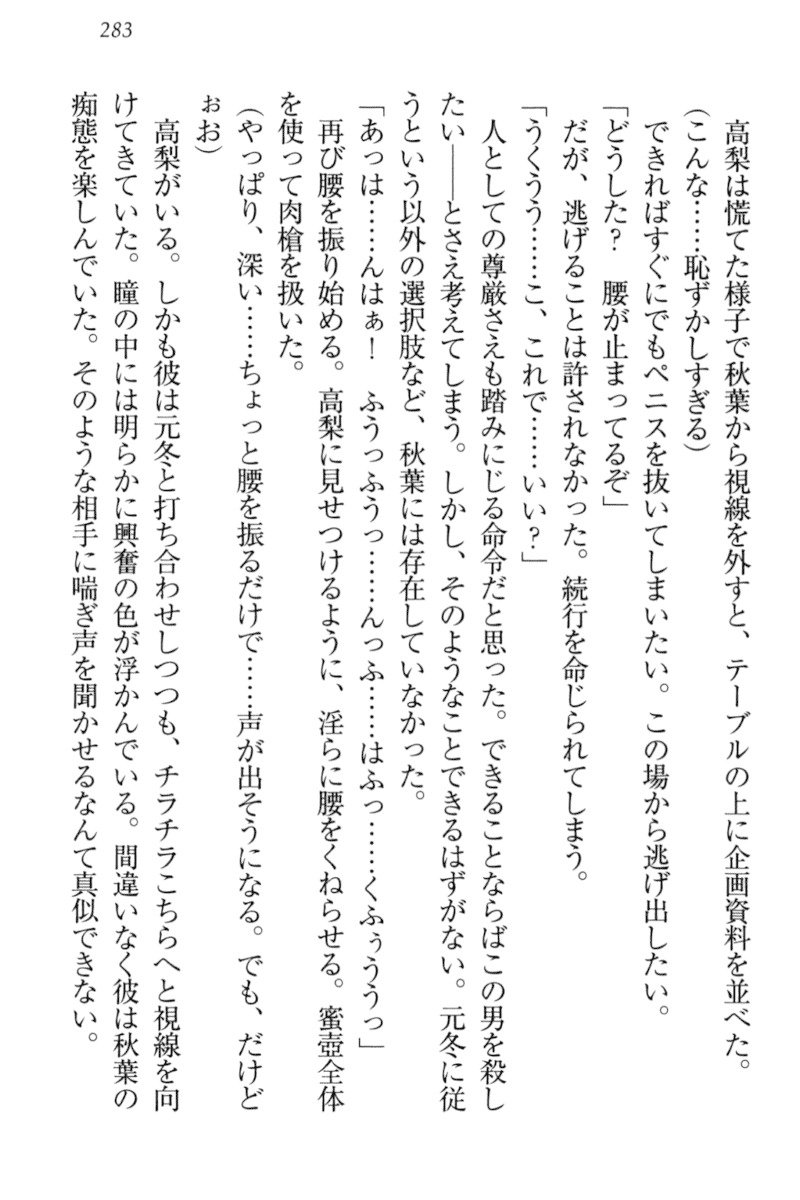 283
高梨は慌てた様子で秋葉から視線を外すと、テーブルの上に企画資料を並べた。
(こんな……恥ずかしすぎる)
できればすぐにでもペニスを抜いてしまいたい。この場から逃げ出したい。
「どうした?　腰が止まってるぞ」
だが、逃げることは許されなかった。続行を命じられてしまう。
「うくうう……こ、これで……いい?」
人としての尊厳さえも踏みにじる命令だと思った。できることならばこの男を殺し
たい――とさえ考えてしまう。しかし、そのようなことできるはずがない。元冬に従
うという以外の選択肢など、秋葉には存在していなかった。
「あっは……んはぁ!　ふうっふうっ……んっふ……はふっ……くふぅううっ」
再び腰を振り始める。高梨に見せつけるように、淫らに腰をくねらせる。蜜壺全体
を使って肉槍を扱いた。
(やっぱり、深い……ちょっと腰を振るだけで……声が出そうになる。でも、だけど
ぉお)
高梨がいる。しかも彼は元冬と打ち合わせしつつも、チラチラこちらへと視線を向
けてきていた。瞳の中には明らかに興奮の色が浮かんでいる。間違いなく彼は秋葉の
痴態を楽しんでいた。そのような相手に喘ぎ声を聞かせるなんて真似できない。